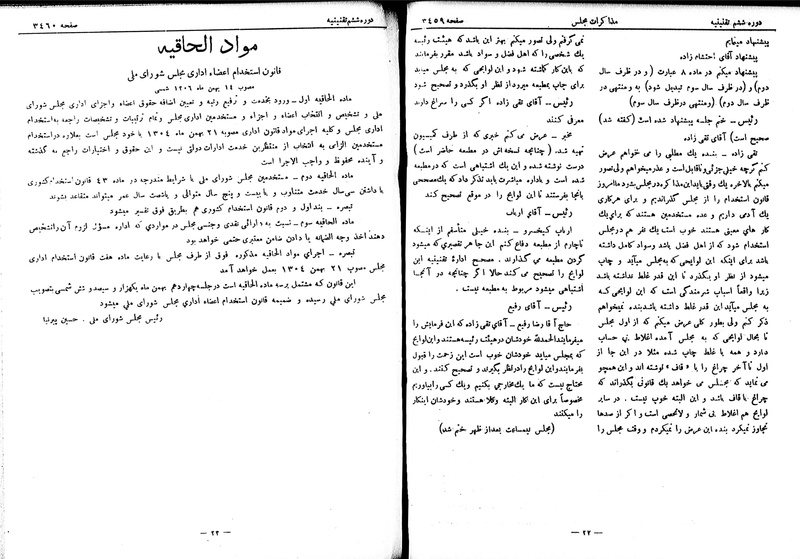 دوره ششم تقنینیه
مذاکرات مجلس
صفحه ۳۴۵۹
پیشنهاد مینمایم
پیشنهاد آقای احتشام زاده
پیشنهاد میکنم در ماده ۸ عبارت (و در ظرف سال
دوم) و (در ظرف سال سوم تبدیل شود) به ومنتهی در
ظرف سال دوم) (ومنتهی درظرف سال سوم)
رئیس – ختم جلسه پیشنهاد شده است (گفته شد)
صحیح است) آقای تقی زاده
تقی زاده – بنده یك مطلبی را می خواهم عرض
کنم گرچه خیلی جزئی و ناقابل است و عذر میخواهم ولی تصور
میکنم بالاخره یك وقتی باید این مذاکره در مجلس بشود ما امروز
قانون استخدام را از مجلس گذراندیم و برای هرکاری
یك آدمی داریم و عده مستخدمین هستند که برای یك
کار های معین هستند خوب است یك نفر هم در مجلس
استخدام شود که از اهل فضل باشد وسواد کامل داشته
باشد برای اینکه این لوایحی که به مجلس میآید و چاپ
میشود از نظر او بگذرد تا این قدر غلط نداشته باشد
زیرا واقعاً اسباب شرمندگی است که این لوایحی که
به مجلس میآید این قدر غلط داشته باشد بنده نمیخواهم
ذکر کنم ولی بطور کلی عرض میکنم که از اول مجلس
تا بحال لوایحی که به مجلس آمده اغلاط بی حساب
دارد و همه با غلط چاپ شده مثلا در این جا از
اول تا آخر چراغ را با «قاف» نوشته اند و این همچو
می نماید که مجلس می خواهد یك قانونی بگذراند که
چراغ با قاف باشد و این البته خوب نیست . در سایر
لوایح هم اغلاط بی شمار و لاتحصی است و اکر از صدها
تجاوز نمیکرد بنده این عرض را نمیکردم و وقت مجلس را
نمی گرفتم ولی تصور میکنم بهتر این باشد که هیئت رئیسه
یك شخصی را که اهل فضل و سواد باشد مقرر بفرمایند
که باین کار گماشته شود و این لوایحی که به مجلس میآید
برای چاپ بمطبعه میرود از نظر او بگذرد و تصحیح شود
رئیس – آقای تقی زاده اگر کسی را سراغ دارند
معرفی کنند
مخبر – عرض می کنم خبری که از طرف کمیسیون
تهیه شد . (چنانچه نسخه اش در مطبعه حاضر است)
درست نوشته شده و این یك اشتباهی است که در مطبعه
شده است و باداره مباشرت باید تذکر داد که یك مصححی
بآنجا بفرستند تا این لوایح را در موقع تصحیح کند
رئیس – آقای ارباب
ارباب کیخسرو – بنده خیلی متأسفم از اینکه
ناچارم از مطبعه دفاع کنم این جا هر تقصیری که میشود
گردن مطبعه می گذارند . مصحح ادارهٔ تقنینیه این
لوایح را تصحیح می کند حالا اگر چنانچه در آنجا
اشتباهی میشود مربوط به مطبعه نیست .
رئیس – آقای رفیع
حاج آقا رضا رفیع – آقای تقی زاده که این فرمایش را
میفرمایند الحمدلله خودشان در هیئت رئیسه هستند و این لوایح
که بمجلس میاید خودشان خوب است این زحمت را قبول
بفرمایند و این لوایح را در نظر بگیرند و تصحیح کنند . و این
محتاج نیست که ما یك مخارجی بکنیم و یك کسی را بیاوریم
مخصوصاً برای این کار البته وکلا هستند و خودشان اینکار
را میکنند
(مجلس نیمساعت بعد از ظهر ختم شد)
– ۲۲ –
دوره ششم تقنینیه
صفحه ۳۴۶۰
مواد الحاقیه
قانون استخدام اعضاء اداری مجلس شورای ملی
مصوب ۱۴ بهمن ماه ۱۳۰۶ شمسی
ماده الحاقیه اول – ورود بخدمت و ترفیع رتبه و تعیین اضافه حقوق اعضاء واجزای اداری مجلس شورای
ملی و تشخیص و انتخاب اعضاء و اجزاء و مستخدمین اداری مجلس وتمام ترتیبات و تشخیصات راجعه به استخدام
اداری مجلس و کلیه اجرای مواد قانون اداری مصوبه ۲۱ بهمن ماه ۱۳۰۴ با خود مجلس است بعلاوه در استخدام
مستخدمین الزامی به انتخاب از منتظرین خدمت ادارات دولتی نیست و این حقوق و اختیارات راجع به گذشته
و آینده محفوظ و واجب الاجرا است
ماده الحاقیه دوم – مستخدمین مجلس شورای ملی با شرایط مندرجه در ماده ۴۳ قانون استخدام کشوری
یا داشتن سی سال خدمت متناوب و یا بیست و پنج سال متوالی و یاشصت سال عمر میتواند متقاعد بشوند
تبصره – بند اول و دوم قانون استخدام کشوری هم بطریق فوق تفسیر میشود
ماده الحاقیه سوم – نسبت به دارائی نقدی وجنسی مجلس در مواردی که اداره مسؤل لزوم آن را تشخیص
دهند اخذ وجه الضمانه یا دادن ضامن معتبری حتمی خواهد بود
تبصره – اجرای مواد الحاقیه مذکوره فوق از طرف مجلس با رعایت ماده هفت قانون استخدام اداری
مجلس مصوب ۲۱ بهمن ۱۳۰۴ بعمل خواهد آمد
این قانون که مشتمل برسه ماده الحاقیه است در جلسه چهاردهم بهمن ماه یکهزار و سیصد و شش شمسی بتصویب
مجلس شورای ملی رسیده و ضمیمه قانون استخدام اعضاء اداری مجلس شورای ملی میشود
رئیس مجلس شورای ملی . حسین پیرنیا
– ۲۳ –